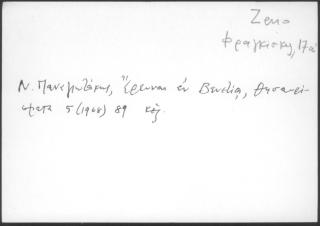 Zeno
Φραγκίσκος, 17α
Ν. Παναγιωτάκης, Ἔρευναι ἐν Βενετίᾳ, Θησαυρί-
σματα 5 (1968) 89 κἑ.